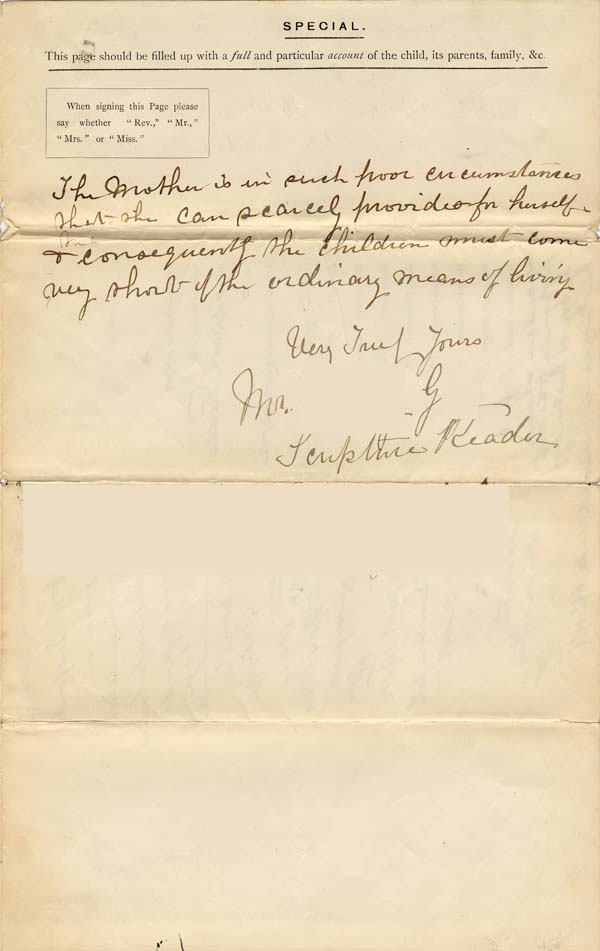 SPECIAL.
This page should be filled up with a full and particular account of the child, its parents, family, &c.
When signing this Page please
say whether "Rev.," "Mr.,"
"Mrs." or "Miss."
The Mother is in such poor circumstances
that she can scarcely provide for herself
& consequently the children must come
very short of the ordinary means of living
Very Truly Yours
Mr. G
Scripture Reader